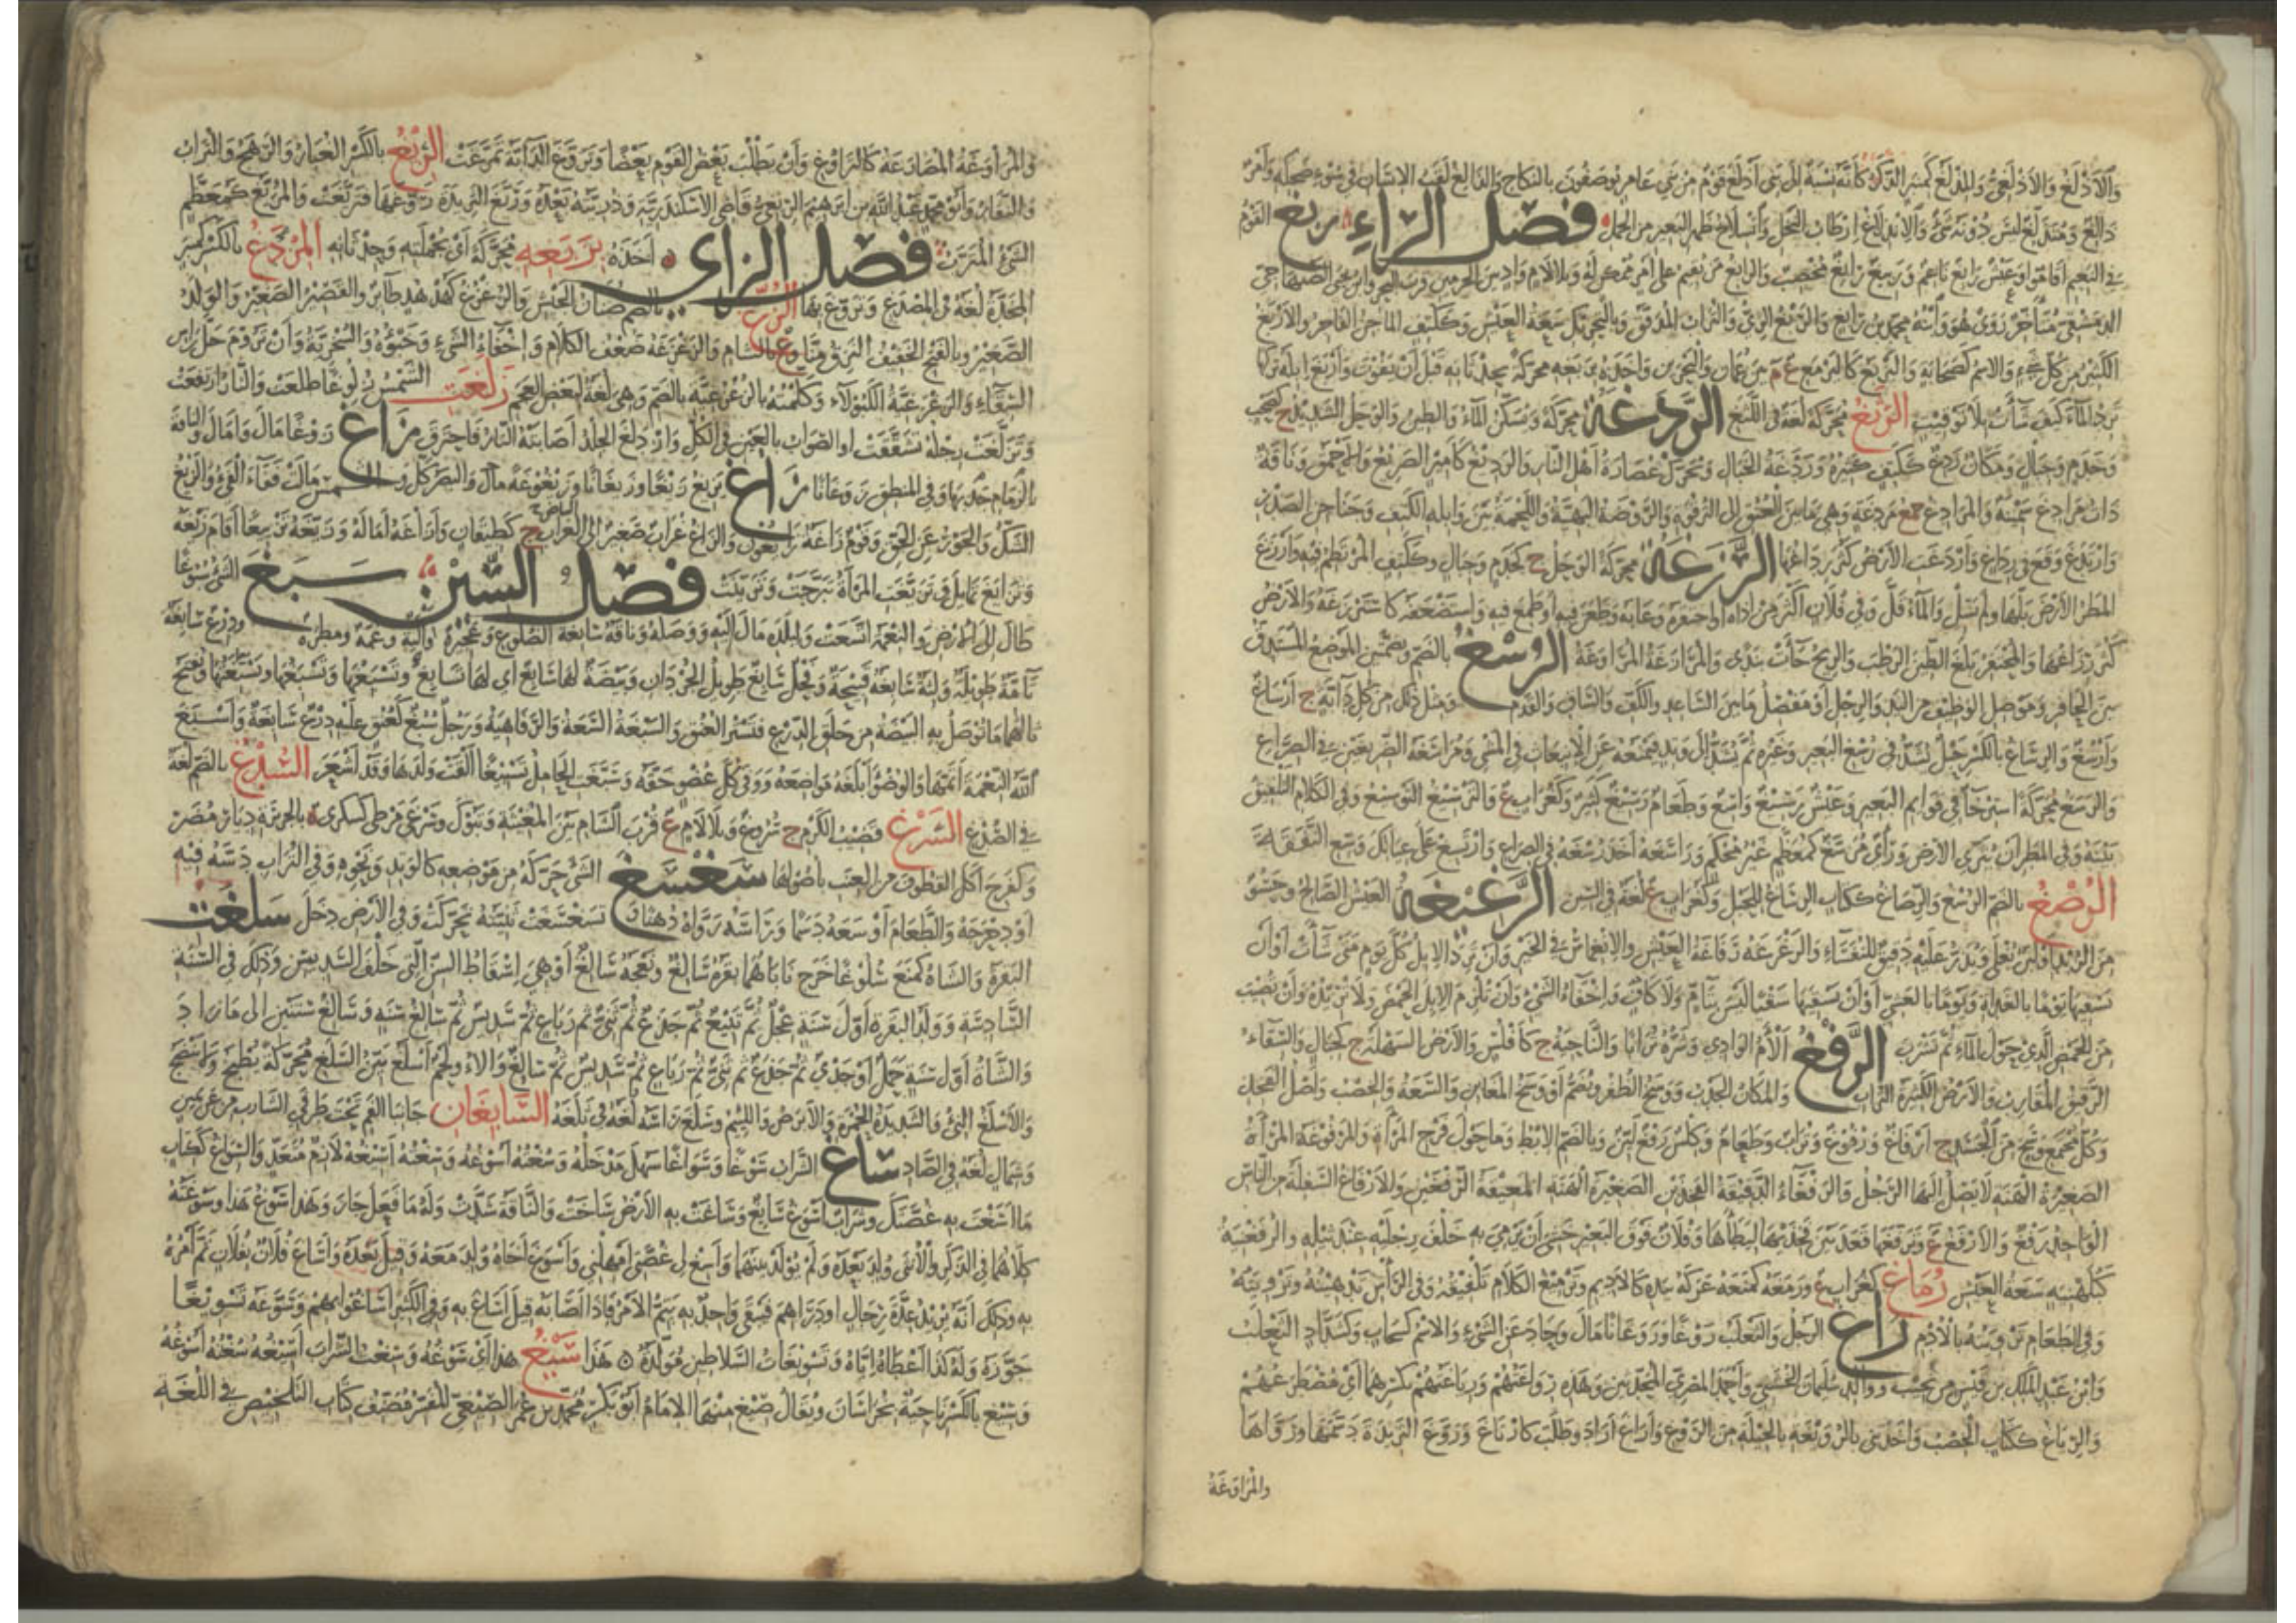 والأذلغ والأذلغي والمذلغ كمنبر الذكر كأنه نسبة إلى بني أذلغ قوم من بني عامر يوصفون بالنكاح والذالغ لقب الإنسان في سوء ضحكه وأمر
ذالغ ومتذلغ ليس دونه شيء والانذلاغ إرطاب النخل وانسلاخ ظهر البعير من الحمل فصل الراء ربغ القوم
في النعيم أقاموا وعيش رابغ ناعم وربيع رابغ مخصب والرابغ من يقيم على أمر ممكن له وبلا لام واد بين الحرمين قرب البحر
الدمشقي متأخر روى هو وابنه محمد بن رابغ والربغ الري والتراب المدقق وبالتحريك سعة العيش وككتف الماجن الفاجر والأربغ
الكثير من كل شيء والاسم كسحابة واليربغ كاليرمع ع م بين عمان والبحرين وأخذه بربغه محركة بحدثانه قبل أن يفوت وأربغ إبله تركها
ترد الماء كيف شاءت بلا توقيت الرثغ محركة لغة في اللثغ الردغة محركة وتسكن الماء والطين والوحل الشديد ج كصحب
وخدم وجبال ومكان ردغ ككتف كثيره وردغة الخبال وتحرك عصارة أهل النار والرديغ كأمير الصريع والأحمق وناقة
ذات مرادغ سمينة والمرادغ جمع مردغة وهي ما بين العنق إلى الترقوة والروضة البهية واللحمة بين وابلة الكتف وجناجن الصدر
وارتدغ وقع في رداغ وأردغت الأرض كثر رداغها الرزغة محركة الوحل ج كخدم وجبال وككتف المرتطم فيه وأرزغ
المطر الأرض بلها ولم تسل والماء قل وفي فلان أكثر من أذاه أو احتقره وعابه وطعن فيه أو طمع فيه واستضعفه كاسترزغه والأرض
كثر رزاغها والمحتفر بلغ الطين الرطب والريح جاءت بندى والمرازغة المراوغة الرسغ بالضم وبضمتين الموضع المستدق
بين الحافر وموصل الوظيف من اليد والرجل أو مفصل ما بين الساعد والكف والساق والقدم ومثل ذلك من كل دابة ج أرساغ
وأرسغ والرساغ بالكسر حبل يشد في رسغ البعير وغيره ثم يشد إلى وتد فيمنعه عن الانبعاث في المشي ومراسغة الصريعين في الصراع
والرسغ محركة استرخاء في قوائم البعير وعيش رسيغ واسع وطعام رسيغ كثير وكغراب ع والترسيغ التوسيع وفي الكلام التلفيق
بينه وفي المطر أن يثري الأرض ورأي مرسغ كمعظم غير محكم وراسغه أخذ رسغه في الصراع وارتسغ على عيالك وسع النفقة
الرصغ بالضم الرسغ والرصاغ ككتاب الرساغ للحبل وكغراب ع لغة في السين الرغيغة العيش الصالح وحسو
من الزبد أو لبن يغلى ويذر عليه دقيق للنفساء والرغرغة رفاغة العيش والانغماس في الخير وأن ترد الإبل كل يوم متى شاءت أو أن
تسقيها يوما بالغداة ويوما بالعشي أو أن تسقيها سقيا ليس بتام ولا كاف وإخفاء الشيء وأن تلزم الإبل الحمض ولا تريده وأن تصيب
من الحمض الذي حول الماء ثم تشرب الرفغ ألأم الوادي وشره ترابا والناحية ج كأفلس والأرض السهلة ج كجبال والسقاء
الرقيق المقارب والأرض الكثيرة التراب والمكان الجدب ووسخ الظفر ويضم أو وسخ المغابن والسعة والخصب وأصل الفخذ
وكل مجمع وسخ من الجسد ج أرفاغ ورفوغ وتراب وطعام وكلس رفغ لين وبالضم الإبط وما حول فرج المرأة والمرفوغة المرأة
الصغيرة الهنة لا يصل إليها الرجل والرفغاء الدقيقة الفخذين الصغيرة الهنة المعيقة الرفغين والأرفاغ السفلة من الناس
الواحد رفغ والأرفغ ع وترفغها قعد بين فخذيها ليطأها وفلان فوق البعير خشي أن يرمي به خلف رجليه عند ثيله والرفغنية
كبلهنية سعة العيش رماغ كغراب ع ورمغه كمنعه عركه بيده كالأديم وترميغ الكلام تلفيقه وفي الرأس تدهينه وترويته
وفي الطعام ترويته بالأدم راغ الرجل والثعلب روغا وروغانا مال وحاد عن الشيء والاسم كسحاب وكشداد الثعلب
وابن عبد الملك بن قيس من تجيب ووالد سليمان الخشني وأحمد المصري المحدثين وهذه رواغتهم ورياغتهم بكسرهما أي مضطرعهم
والرياغ ككتاب الخصب وأخذتني بالرويغة بالحيلة من الروغ وأراغ أراد وطلب كارتاغ وروغ الثريدة دسمها ورواها
والمراوغة
والمراوغة المصارعة كالتراوغ وأن يطلب بعض القوم بعضا وتروغ الدابة تمرغت الريغ بالكسر الغبار والرهج والتراب
والنقار وأبو محمد عبد الله بن إبراهيم الريغي قاضي الإسكندرية وذريته بعده وريغ الثريدة روغها فتريغت والمريغ كمعظم
الشيء المترب فصل الزاي أخذه بزبغه محركة أي بجملته وحدثانه المزدغ بالكسر كمنبر
المخدة لغة في المصدغ وتزوغ بها الزغ بالضم صنان الحبش والزغزغ كهدهد طائر والقصير الصغير والولد
الصغير وبالفتح الخفيف النزق منا وع بالشام والزغزغة ضعف الكلام وإخفاء الشيء وخبؤه والسخرية وأن تروم حل رأس
السقاء والزغزغية الكبولاء وكلمته بالزغزغية بالضم وهي لغة لبعض العجم زلغت الشمس زلوغا طلعت والنار ارتفعت
وتزلغت رجله تشققت أو الصواب بالعين في الكل وازدلغ الجلد أصابته النار فاحترق زاغ زوغا مال وأمال والناقة
بالزمام جذبها وفي المنطق زوغانا زاغ يزيغ زيغا وزيغانا وزيغوغة مال والبصر كل والشمس مالت ففاء الفيء والزيغ
الشك والجور عن الحق وقوم زاغة زائغون والزاغ غراب صغير إلى البياض ج كطيقان وأزاغه أماله وزيغه تزييغا أقام زيغه
وتزايغ تمايل وتزيغت المرأة تبرجت وتزينت فصل السين سبغ الشيء سبوغا
طال إلى الأرض والنعمة اتسعت ولبلده مال إليه ووصله وناقة سابغة الضلوع وعجيزة وألية وعمة ومطرة ودرع سابغة
تامة طويلة ولثة سابغة قبيحة وفحل سابغ طويل الجردان وبيضة لها سابغ أي لها تسابغ وتسبغها وتسبغها وتسبغتها وتفتح
باؤها ما توصل به البيضة من حلق الدرع فتستر العنق والسبغة السعة والرفاهية ورجل سبغ كعنق عليه درع سابغة وأسبغ
الله النعمة أتمها والوضوء أبلغه مواضعه ووفى كل عضو حقه وسبغت الحامل تسبيغا ألقت ولدها وقد أشعر السدغ بالضم لغة
في الصدغ السرغ قضيب الكرم ج سروغ وبلا لام ع قرب الشام بين المغيثة وتبوك وسرغى مرطى كسكرى ة بالجزيرة ديار مضر
وكفرح أكل القطوف من العنب بأصولها سغسغ الشيء حركه من موضعه كالوتد ونحوه وفي التراب دسه فيه
أو دحرجه والطعام أوسعه دسما ورأسه رواه دهنا وتسغسغت ثنيته تحركت وفي الأرض دخل سلغت
البقرة والشاة كمنع سلوغا خرج ناباهما بقرة سالغ ونعجة سالغ أو هي إسقاط السن التي خلف السديس وذلك في السنة
السادسة وولد البقرة أول سنة عجل ثم تبيع ثم جذع ثم ثني ثم رباع ثم سديس ثم سالغ سنة وسالغ سنتين إلى ما زاد
والشاة أول سنة حمل أو جدي ثم جذع ثم ثني ثم رباع ثم سديس ثم سالغ والآء ولحم أسلغ بين السلغ محركة يطبخ ولا ينضج
والأسلغ النيء والشديد الحمرة والأبرص واللئيم وسلغ رأسه لغة في ثلغه السامغان جانبا الفم تحت طرفي الشارب من عن يمين
وشمال لغة في الصاد ساغ الشراب سوغا وسواغا سهل مدخله وسغته أسوغه وسغته أسيغه لازم متعد والسواغ ككتاب
ما أسغت به غصتك وشراب أسوغ سائغ وساغت به الأرض ساخت والناقة شدت وله ما فعل جاز وهذا سوغ هذا وسوغته
كلاهما في الذكر والأنثى ولد بعده ولم يولد بينهما وأسغ لي غصتي أمهلني وأسوغ أخاه ولد معه وقيل بعده وأساغ فلان بفلان تم أمره
به وذلك أنه يريد عدة رجال أو دراهم فيبقى واحد به يتم الأمر فإذا أصابه قيل أساغ به وفي الكثير أساغوا بهم وسوغه تسويغا
جوزه وله كذا أعطاه إياه وتسويغات السلاطين مولدة هذا سيغ هذا أي سوغه وسغت الشراب أسيغه سغته أسوغه
وسيغ بالكسر ناحية بخراسان ويقال صيغ منها الإمام أبو بكر محمد بن عمر الصيغي المفسر مصنف كتاب التلخيص في اللغة